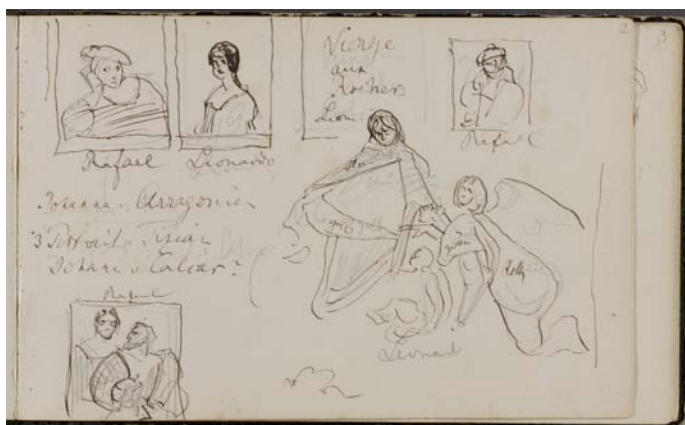 2
3
Vierge
aux
Rochers
Lion
Rafael
Leonardo
Rafael
Johanna v. Arragonien
3 Portraits Tizian
Johann v. Calcar?
Rafael
Gelb
Leonard